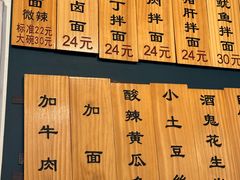 面
微辣
标准22元
大碗30元
卤面
24元
拌面
24元
肉拌面
24元
丁拌面
24元
猪肝拌面
24元
鱿鱼拌面
30元
加牛肉
加面
酸辣黄瓜
小土豆丝
酒鬼花生